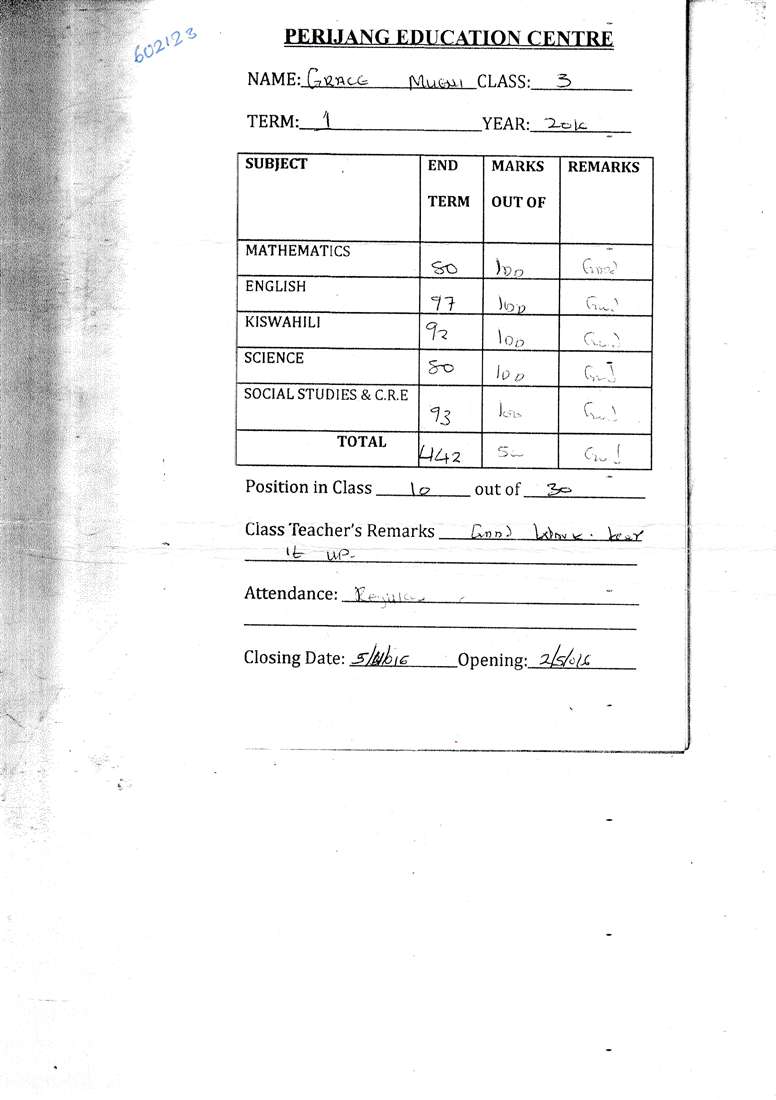 602123
PERIJANG EDUCATION CENTRE
NAME: GRACE MUGHI CLASS: 3
TERM: 1 YEAR: 2016
SUBJECT END TERM MARKS OUT OF REMARKS
MATHEMATICS 80 100 Good
ENGLISH 97 100 Good
KISWAHILI 92 100 Good
SCIENCE 80 100 Good
SOCIAL STUDIES & C.R.E 93 100 Good
TOTAL 442 500 Good
Position in Class 10 out of 30
Class Teacher's Remarks Good work. keep
it up.
Attendance: Regular
Closing Date: 5/4/016 Opening: 2/5/016